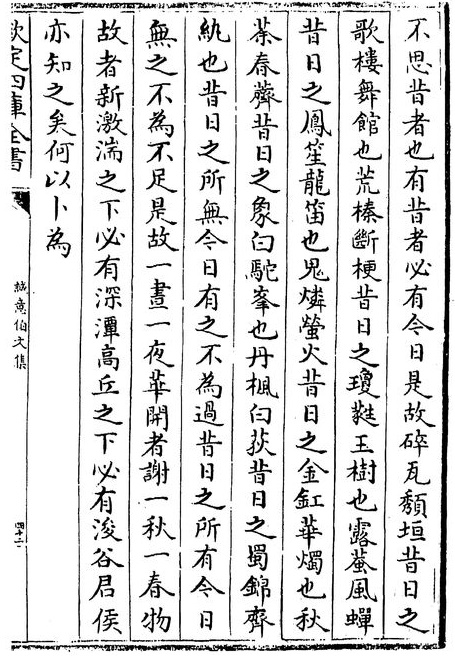 不思昔者也有昔者必有今日是故碎瓦頽垣昔日之
歌樓舞館也荒榛斷梗昔日之瓊蕤玉樹也露蛬風蟬
昔日之鳳笙龍笛也鬼燐螢火昔日之金釭華燭也秋
荼春薺昔日之象白駝峯也丹楓白荻昔日之蜀錦齊
紈也昔日之所無今日有之不為過昔日之所有今日
無之不為不足是故一晝一夜華開者謝一秋一春物
故者新激湍之下必有深潭高丘之下必有浚谷君侯
亦知之矣何以卜為
欽定四庫全書
誠意伯文集